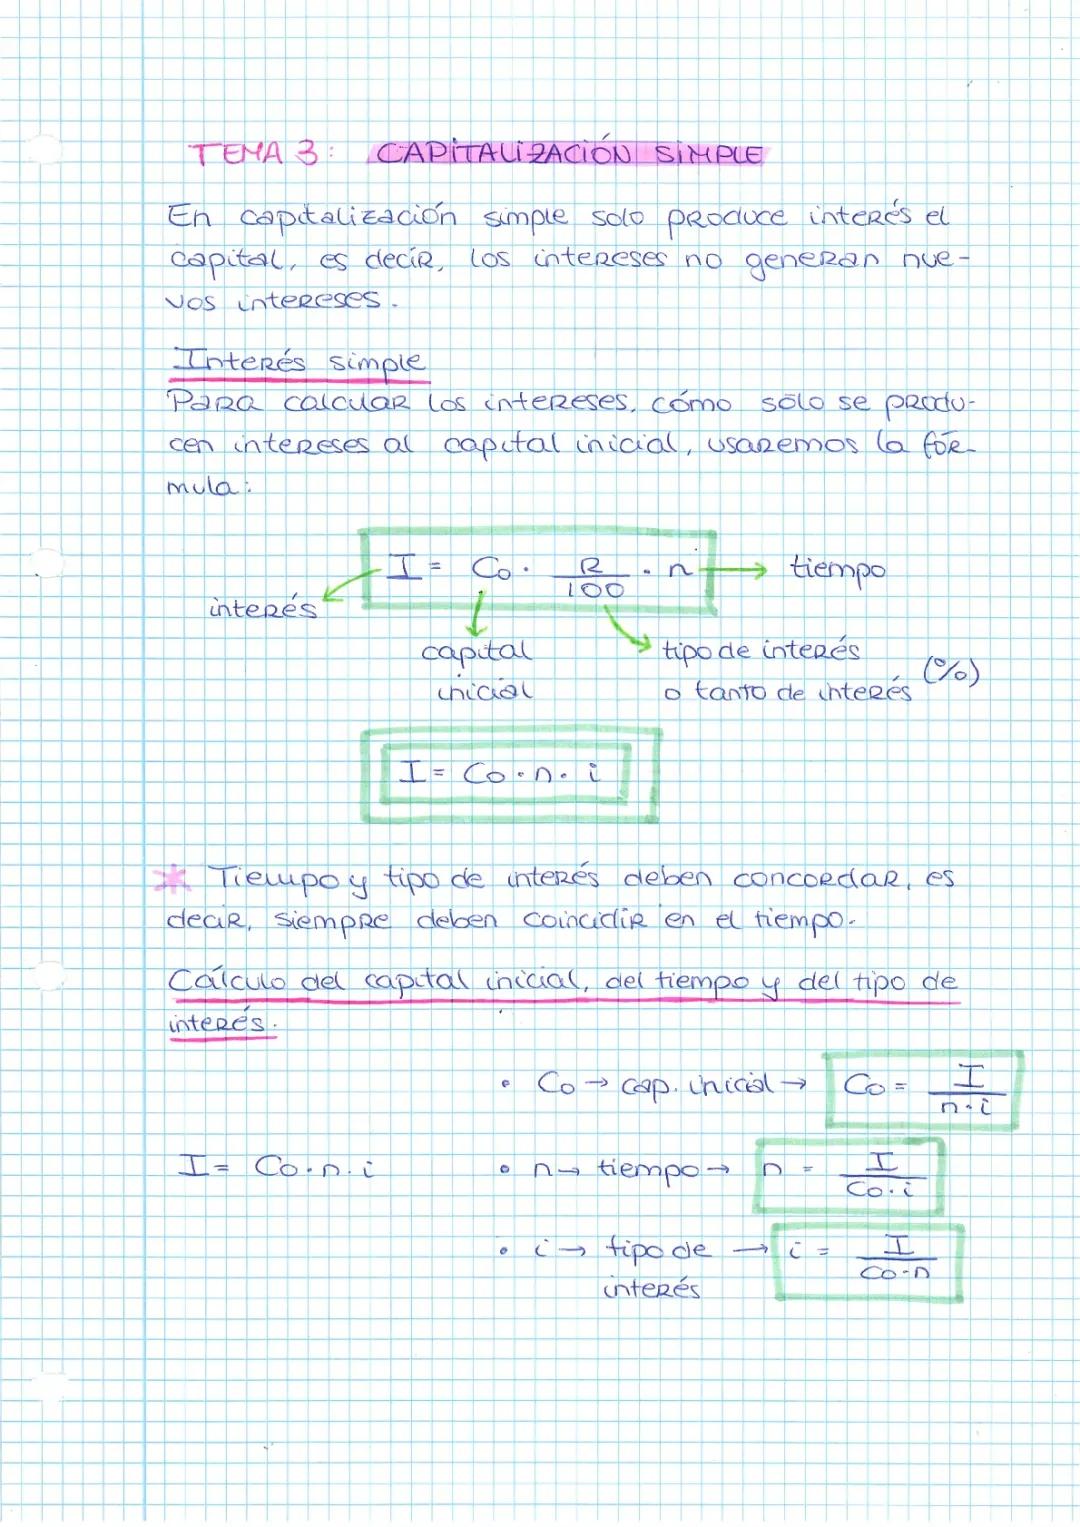 TEMA 3: CAPITALIZACIÓN SIMPLE
En capitalización simple solo produce interés el
capital, es decir, los intereses no generan nue-
vos intereses.
Interés simple
Para calcular los intereses, cómo sólo se produ-
cen intereses al capital inicial, usaremos la fór-
mula:
I = Co · R/100 · n → tiempo
interés
capital
inicial
tipo de interés
o tanto de interés (%)
I = Co · n · i
* Tiempo y tipo de interés deben concordar, es
decir, siempre deben coincidir en el tiempo.
Cálculo del capital inicial, del tiempo y del tipo de
interés.
• Co → cap. inicial → Co = I/n·i
I = Co · n · i
• n → tiempo → n = I/Co·i
• i → tipo de interés → i = I/Co·n